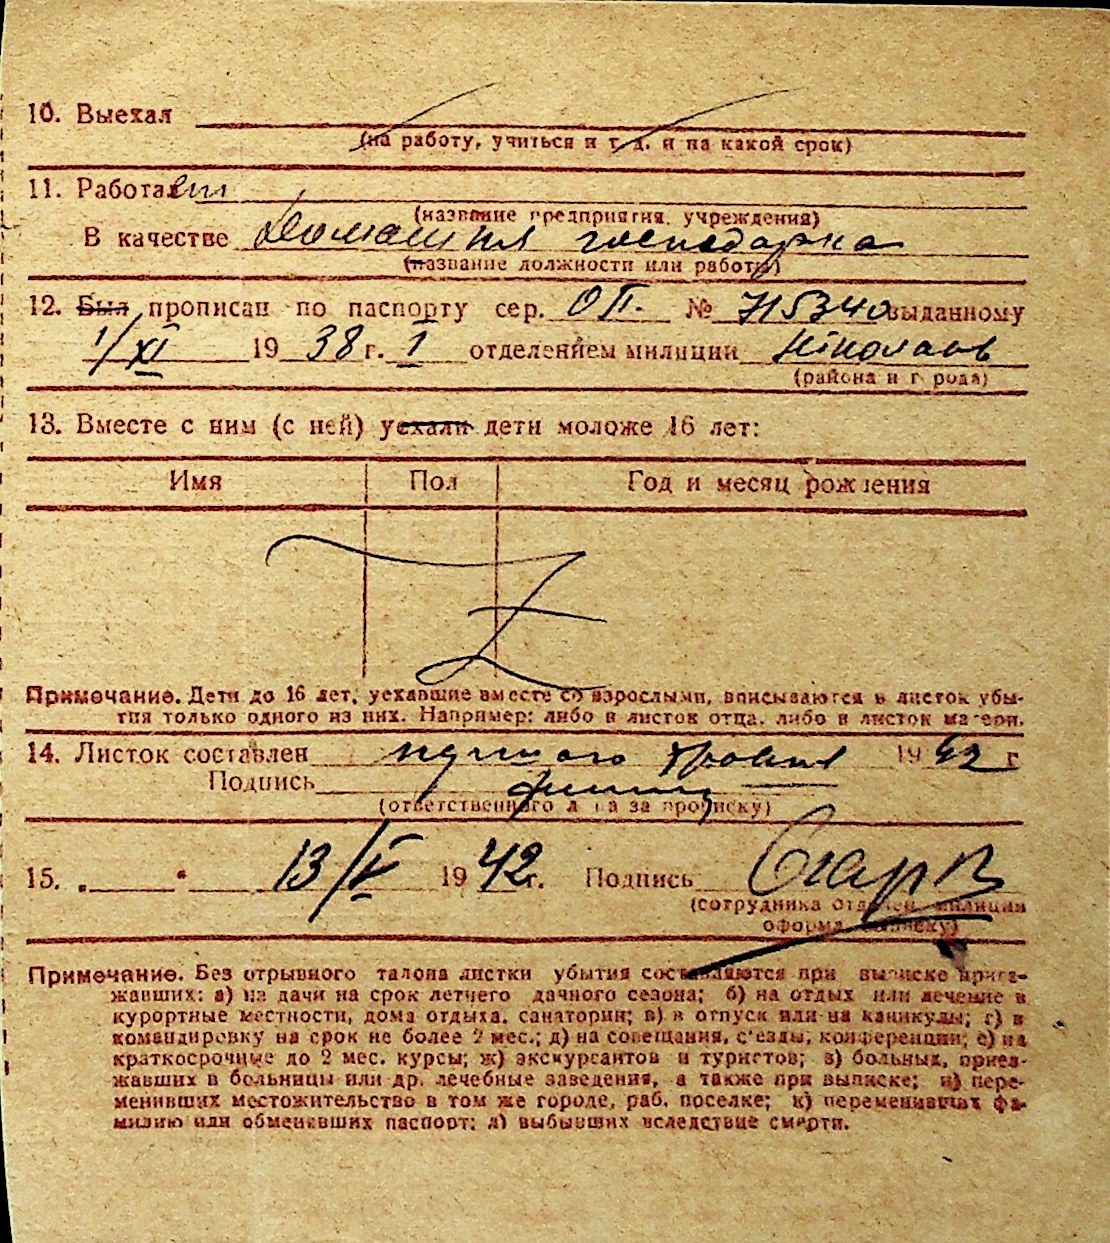 10. Выехал
(на работу, учиться и т. д. и на какой срок)
11. Работает
(название предприятия, учреждения)
В качестве Домашня господарка
(название должности или работы)
12. Был прописан по паспорту сер. ОП. № 715340 выданному
1/XI 1938 г. 1 отделением милиции Ніколаїв
(района и города)
13. Вместе с ним (с ней) уехали дети моложе 16 лет:
Имя Пол Год и месяц рождения
Примечание. Дети до 16 лет, уехавшие вместе со взрослыми, вписываются в листок убы-
тия только одного из них. Например: либо в листок отца, либо в листок матери.
14. Листок составлен травня 1942 г
Подпись
(ответственного лица за прописку)
15. „ “ 13/V 1942 г. Подпись
(сотрудника отделен. милиции
оформ. выписку)
Примечание. Без отрывного талона листки убытия составляются при выписке приез-
жавших: а) на дачи на срок летнего дачного сезона; б) на отдых или лечение в
курортные местности, дома отдыха, санатории; в) в отпуск или на каникулы; г) в
командировку на срок не более 2 мес.; д) на совещания, с'езды, конференции; е) на
краткосрочные до 2 мес. курсы; ж) экскурсантов и туристов; з) больных, приез-
жавших в больницы или др. лечебные заведения, а также при выписке; и) пере-
менивших местожительство в том же городе, раб. поселке; к) переменивших фа-
милию или обменявших паспорт; л) выбывших вследствие смерти.